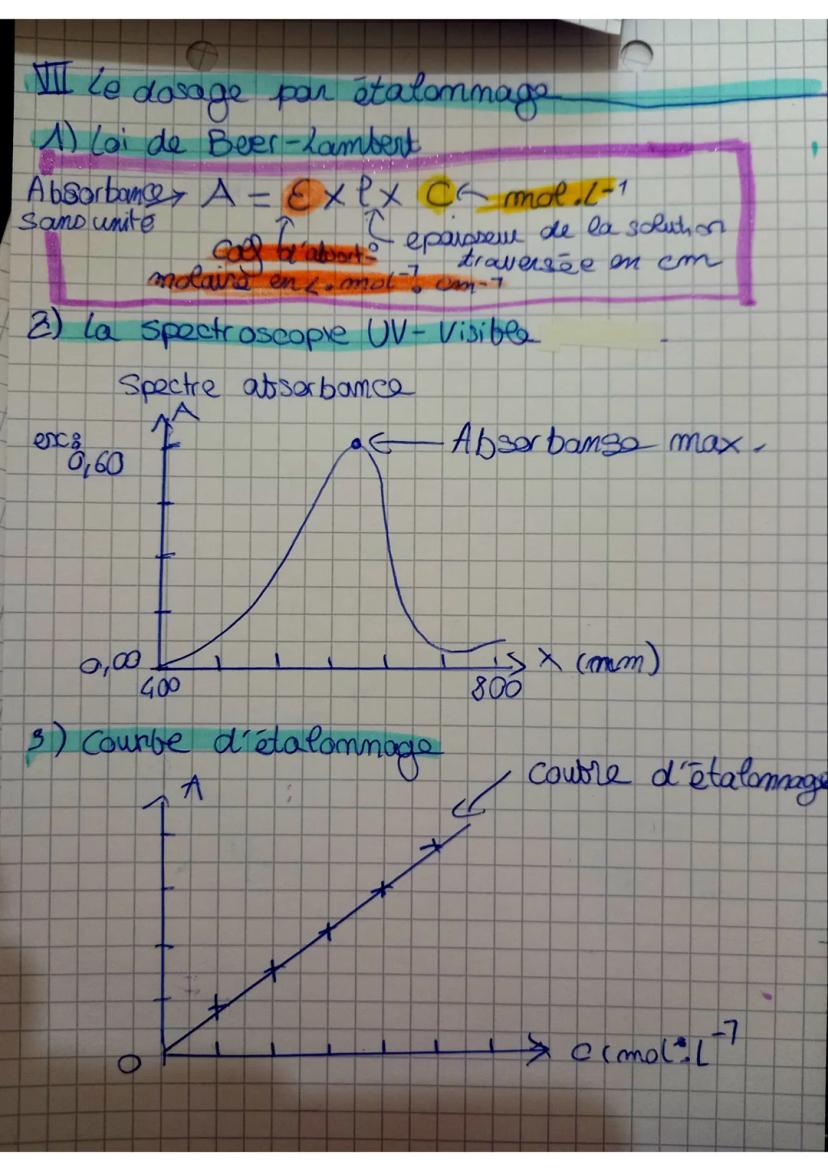 VII Le dosage par étalonnage
1) Loi de Beer-Lambert
Absorbance → A = ε × l × C ← mol.L⁻¹
sans unité
épaisseur de la solution
coef d'absort°
traversée en cm
molaire en L.mol⁻¹.cm⁻¹
2) La spectroscopie UV-Visible
Spectre absorbance
A
exc:
0,60
← Absorbanse max.
0,00
400
800
λ (nm)
3) Courbe d'étalonnage
A
coubre d'étalonnage
0
C (mol.L⁻¹